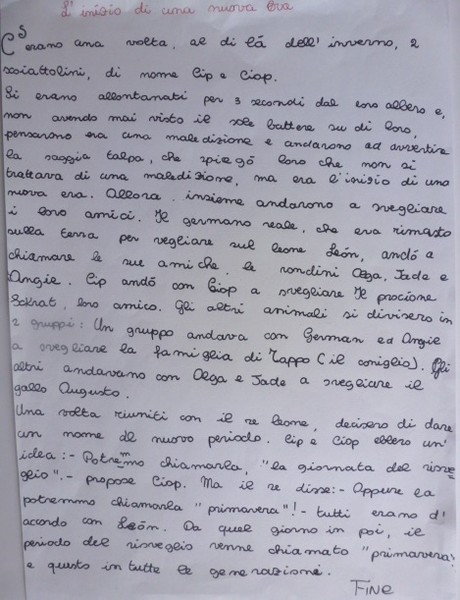 L'inizio di una nuova Era
C'erano una volta, al di lá dell'inverno, 2
scoiattolini, di nome Cip e Ciop.
Si erano allontanati per 3 secondi dal loro albero e,
non avendo mai visto il sole battere su di loro,
pensarono era una maledizione e andarono ad avvertire
la saggia talpa, che spiegó loro che non si
trattava di una maledizione, ma era l'inizio di una
nuova era. Allora insieme andarono a svegliare
i loro amici. Il germano reale, che era rimasto
sulla terra per vegliare sul leone León, andó a
chiamare le sue amiche, le rondini Olga, Jade e
Angie. Cip andó con Ciop a svegliare Il procione
loro amico. Gli altri animali si divisero in
2 gruppi: Un gruppo andava con German ed Angie
a svegliare la famiglia di Tappo (il coniglio). Gli
altri andavano con Olga e Jade a svegliare il
gallo Augusto.
Una volta riuniti con il re leone, decisero di dare
un nome al nuovo periodo. Cip e Ciop ebbero un'
idea :- Potremmo chiamarla, "la giornata del risve-
glio".- propose Ciop. Ma il re disse:- Oppure la
potremmo chiamarla "primavera"!- tutti erano d'
accordo con León. Da quel giorno in poi, il
periodo del risveglio venne chiamato "primavera"
e questo in tutte le generazioni.
FINE